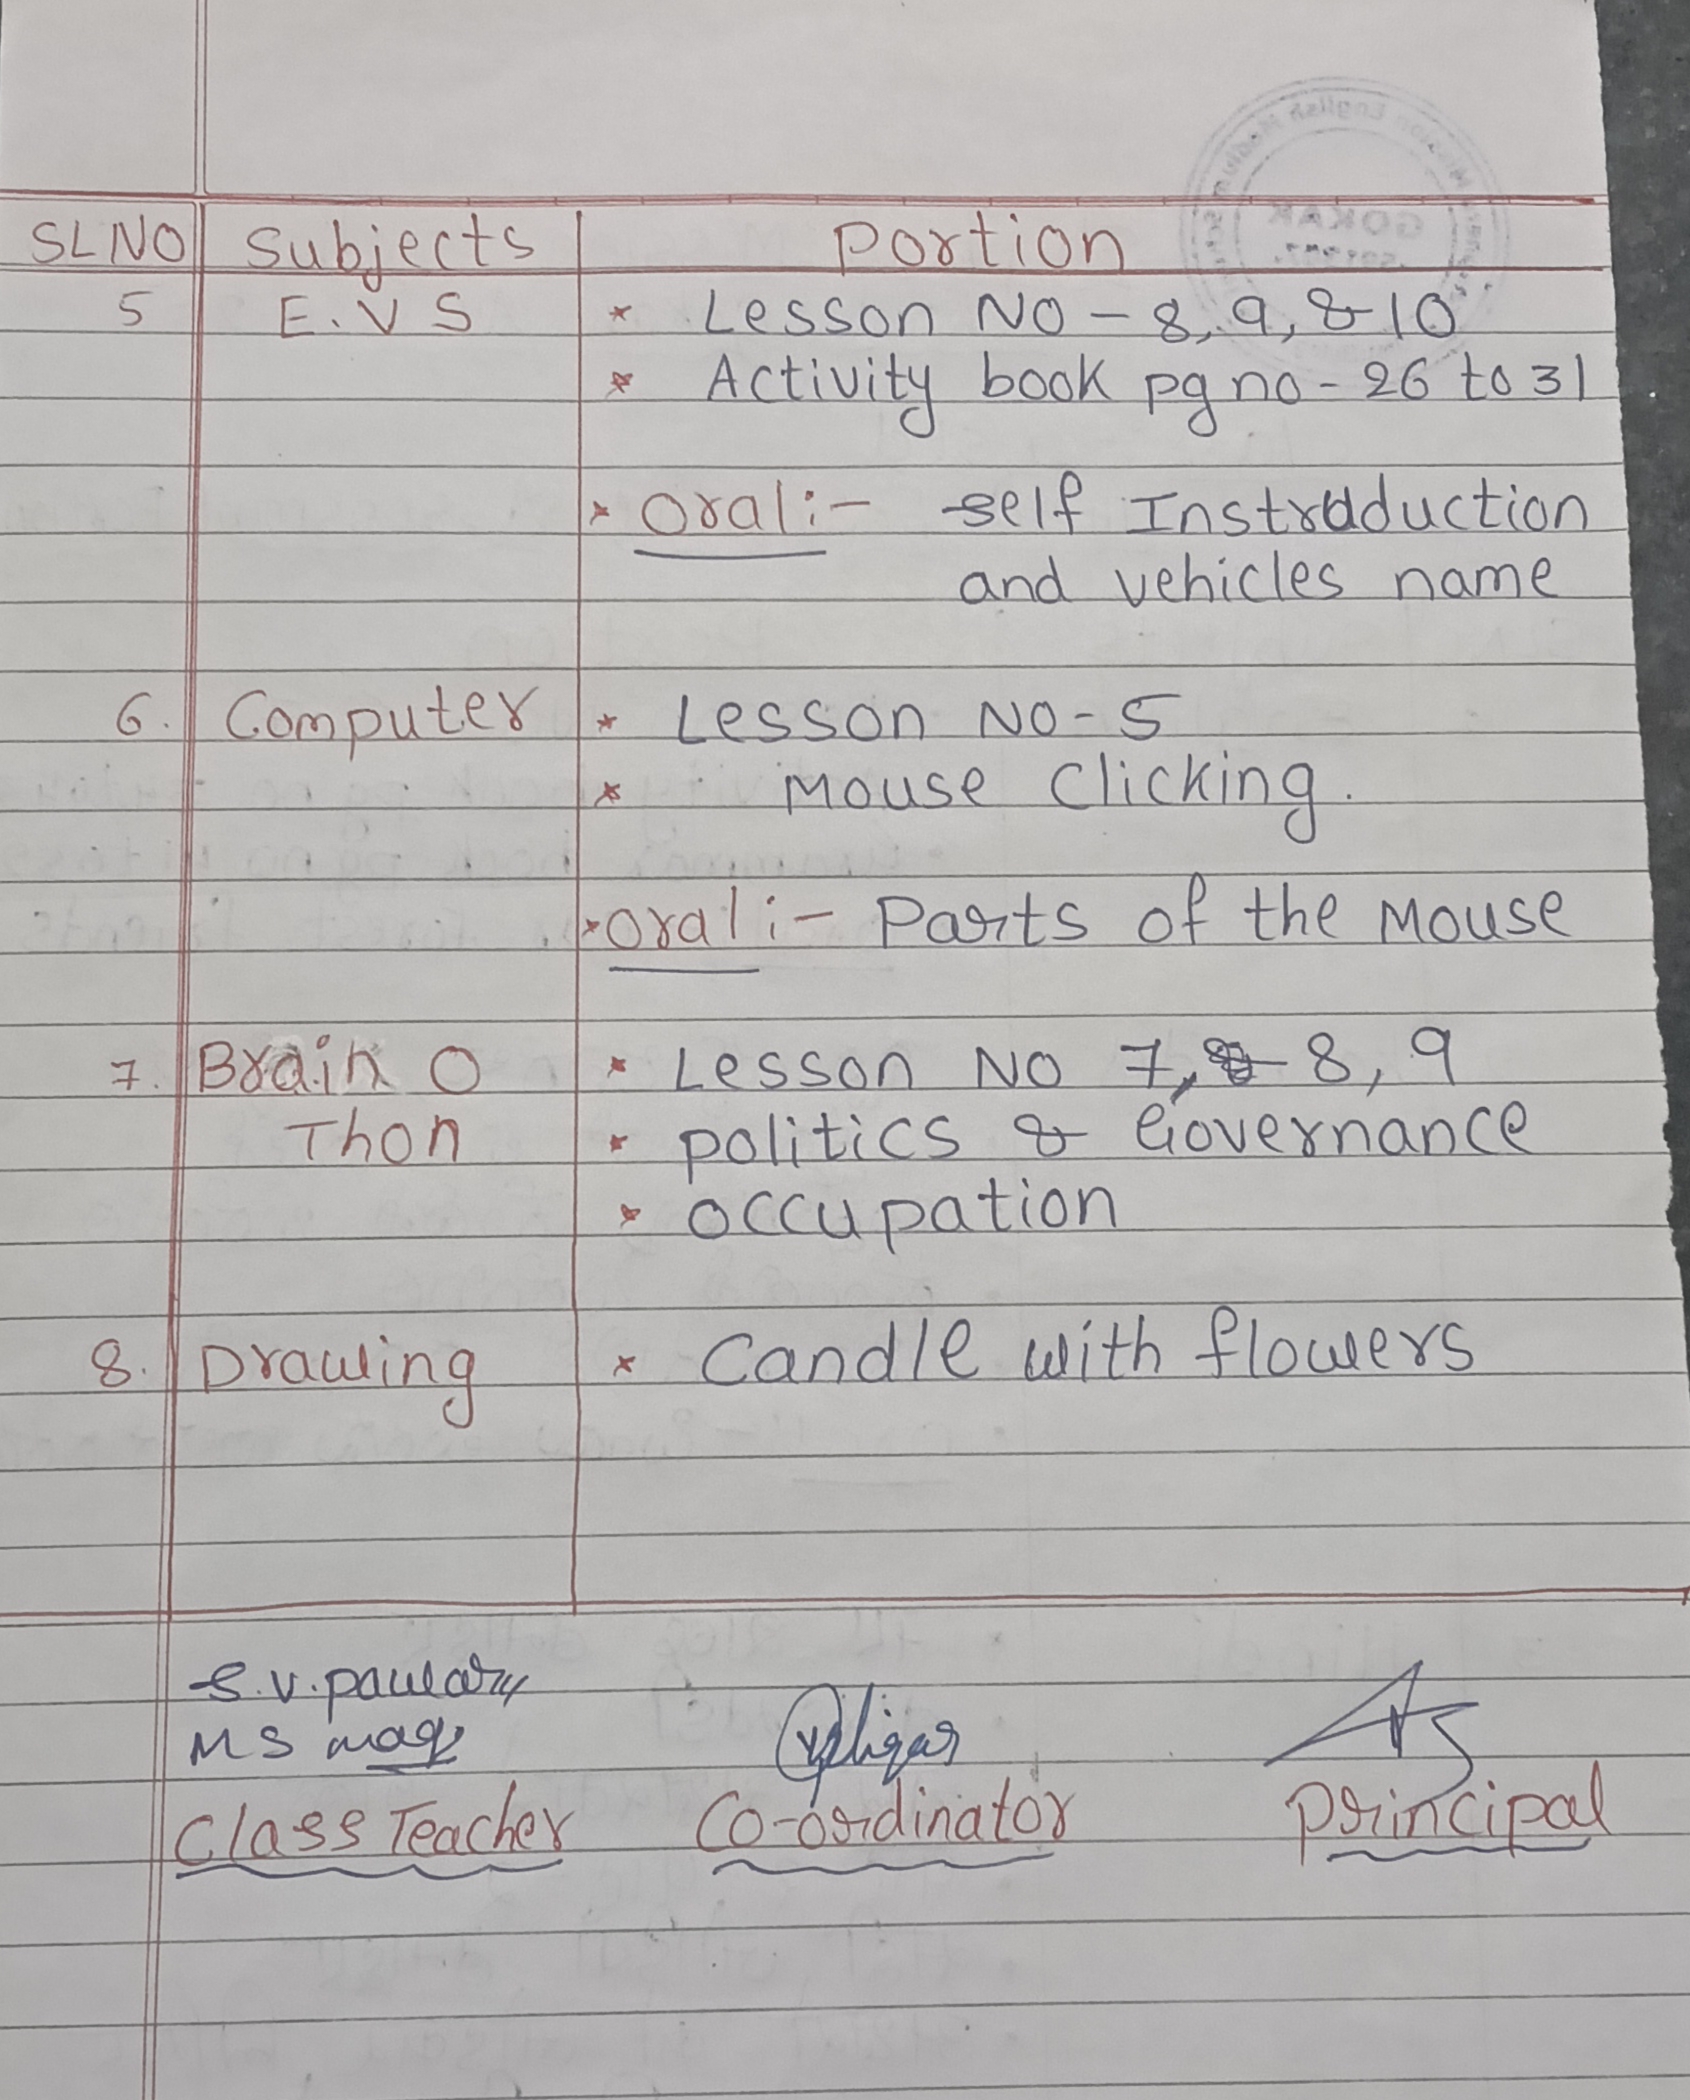 SLNO Subjects Portion
5 E.V S * Lesson NO - 8, 9, & 10
* Activity book pg no - 26 to 31
* Oral :- self Instraduction
and vehicles name
6. Computer * Lesson NO - 5
* Mouse Clicking.
* Oral :- Parts of the Mouse
7. Brain O * Lesson NO 7, 8, 9
Thon * politics & Governance
* occupation
8. Drawing * Candle with flowers
S.V.pawar
MS
Class Teacher Co-ordinator Principal